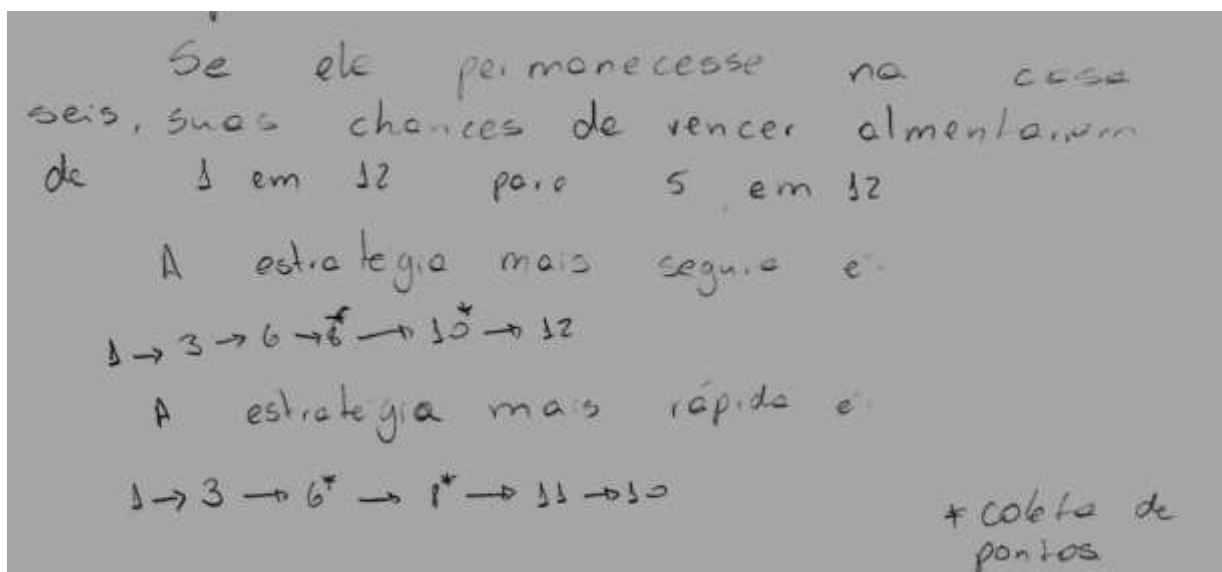 Se ele permanecesse na casa
seis, suas chances de vencer almentariam
de 1 em 12 para 5 em 12
A estrategia mais segura é:
1 → 3 → 6 → 8* → 10* → 12
A estrategia mais rápida é:
1 → 3 → 6* → 8* → 11 → 10
* coleta de
pontos